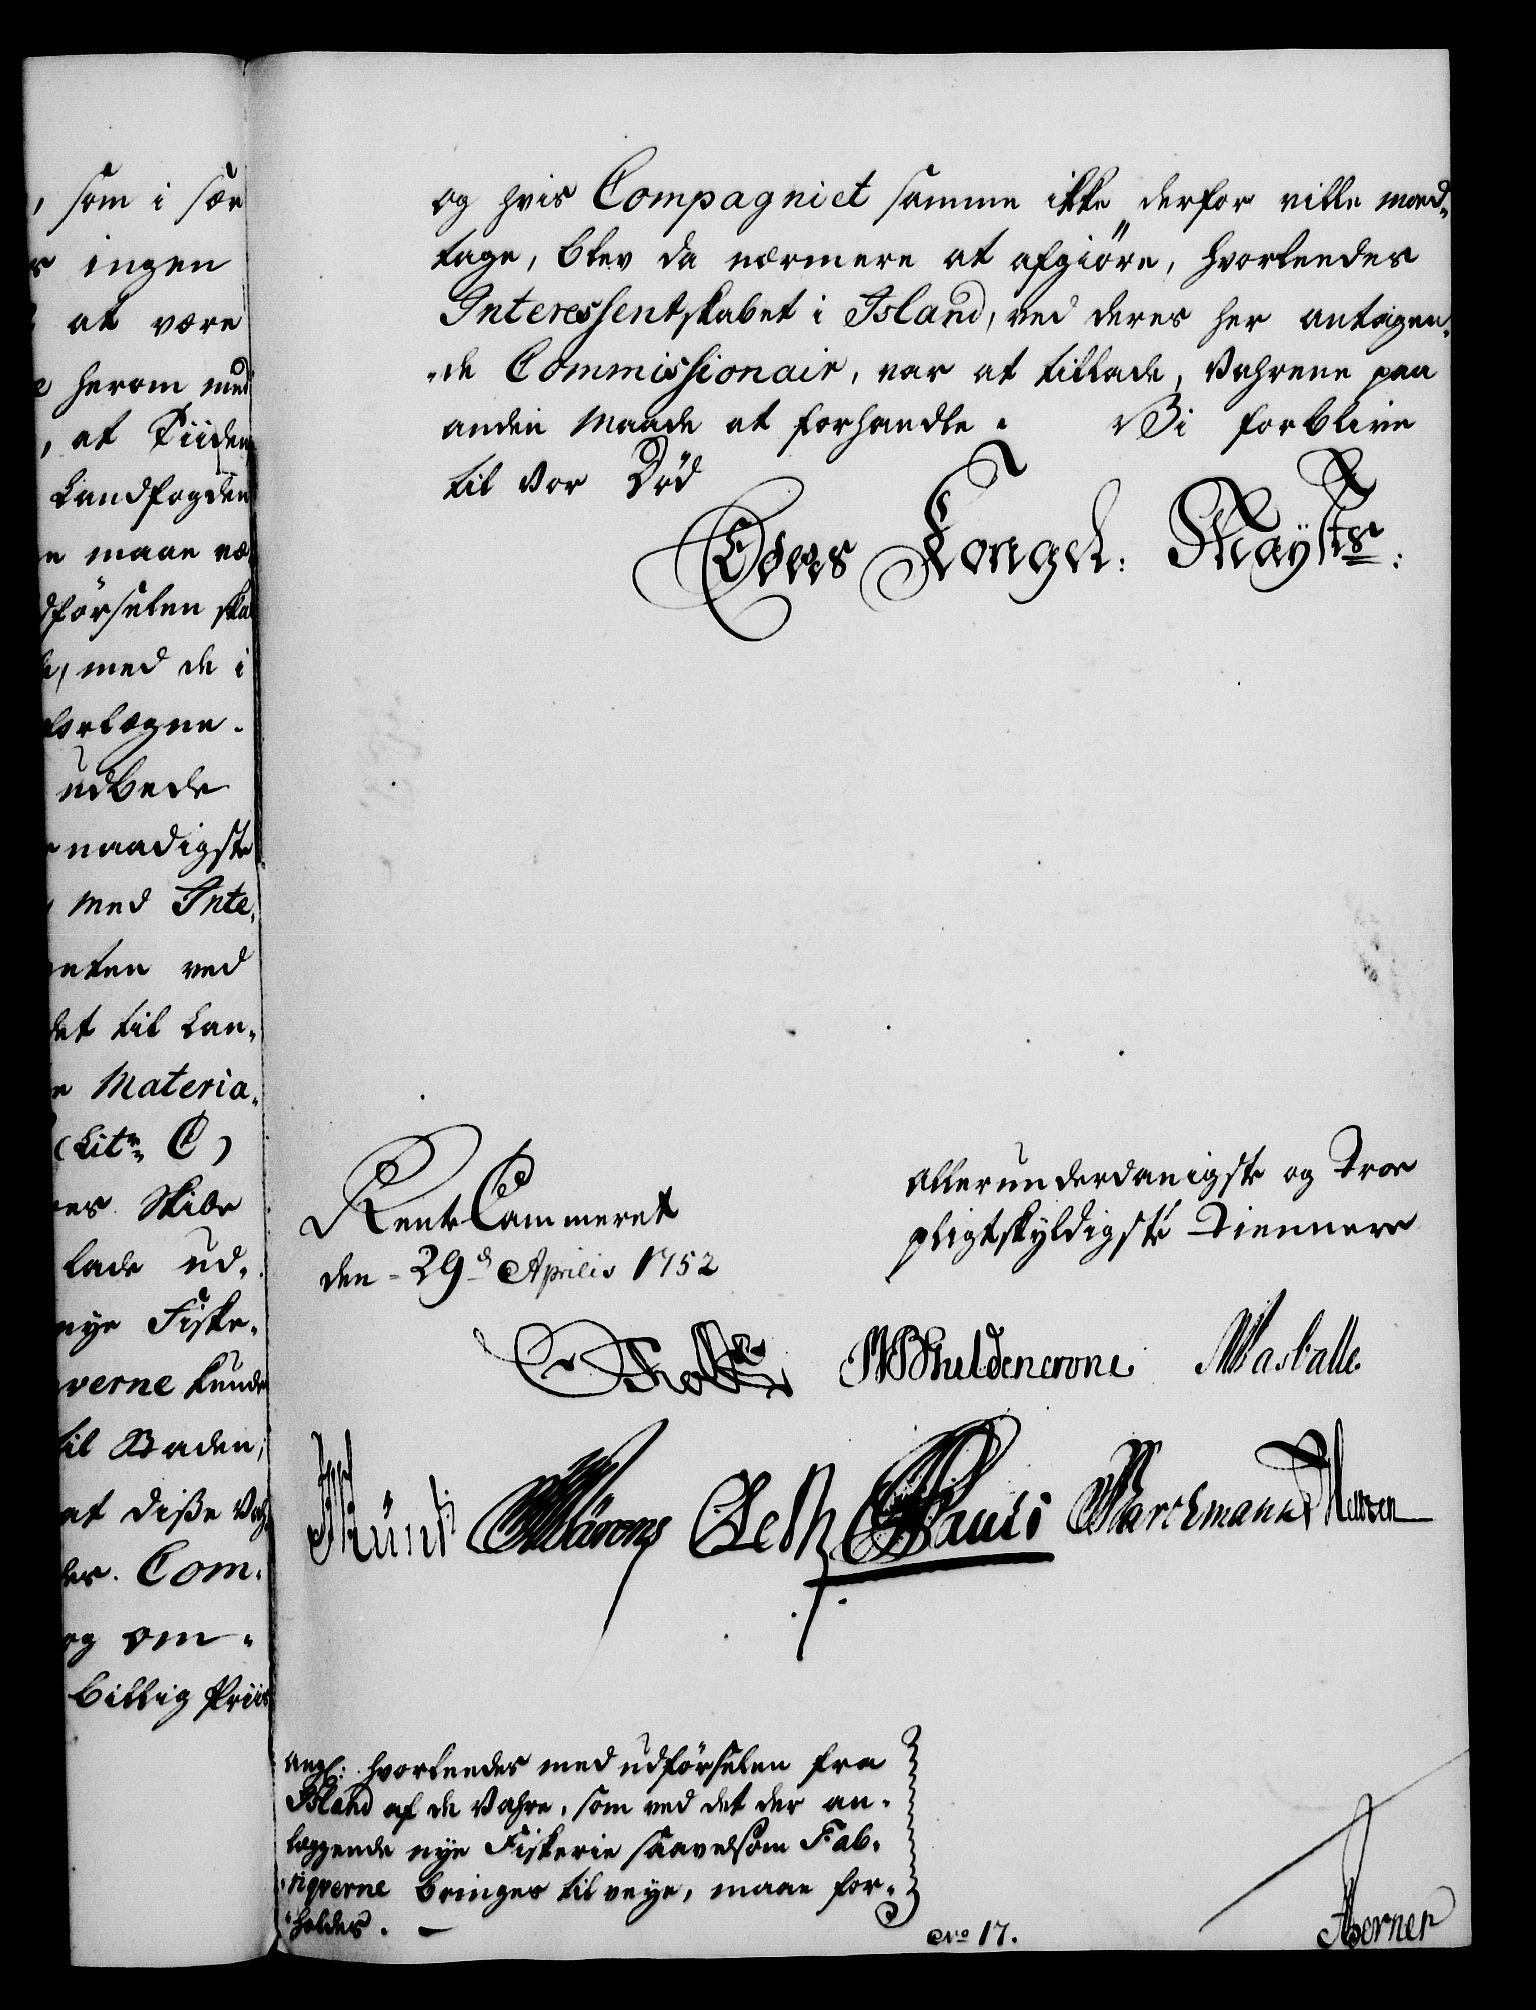 , som i sær
ingen
at være
herom med
, at Tiiden
Landfogden
maae væ
dførselen ska
med de i
forlægne.
udbede
naadigste
med Inte-
ved
det til Lan-
Materia-
(Litr. C)
Skibe
lade ud-
nye Fiske-
verne kunde
til Baden,
at diße Vah-
Com-
og om-
billig Priis
og hvis Compagniet samme ikke derfor ville mod-
tage, blev da nærmere at afgiöre, hvorledes
Interessentskabet i Island, ved deres her antagen-
-de Commissionair, var at tillade, Vahrene paa
anden Maade at forhandle. Vi forblive
til vor Död
Eders Kongel: Mayts:
RenteCammeret
den - 29d Aprilis 1752
allerunderdanigste og Troe
pligtskyldigste Tiennere
Holst WBGuldencrone Masballe
Münt Leth Pauli Barchmann
angl: hvorledes med udförselen fra
Island af de Vahre, som ved det der an-
læggende nye Fiskerie saavelsom Fab-
riqverne bringes til veye, maae for-
-holdes. -
No 17.